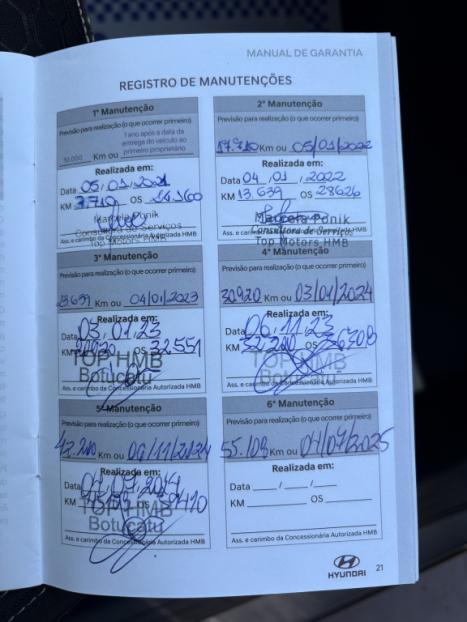 MANUAL DE GARANTIA
REGISTRO DE MANUTENÇÕES
1ª Manutenção
Previsão para realização (o que ocorrer primeiro)
10.000 Km ou 1 ano após a data da
entrega do veículo ao
primeiro proprietário
Realizada em:
Data 05, 01, 2021
KM 7.710 OS
Marcela Panik
Consultora de Serviços
Top Motors HMB
Ass. e carimbo da Concessionária Autorizada HMB
2ª Manutenção
Previsão para realização (o que ocorrer primeiro)
17.710 Km ou 05/01/2022
Realizada em:
Data 04, 01, 2022
KM 13.639 OS 28626
Marcela Panik
Consultora de Serviços
Top Motors HMB
Ass. e carimbo da Concessionária Autorizada HMB
3ª Manutenção
Previsão para realização (o que ocorrer primeiro)
23.639 Km ou 04/01/2023
Realizada em:
Data 03, 01, 23
KM 20920 OS 32.551
TOP HMB
Botucatu
Ass. e carimbo da Concessionária Autorizada HMB
4ª Manutenção
Previsão para realização (o que ocorrer primeiro)
30920 Km ou 03/01/2024
Realizada em:
Data 06, 11, 23
KM 32.200 OS
TOP HMB
Botucatu
Ass. e carimbo da Concessionária Autorizada HMB
5ª Manutenção
Previsão para realização (o que ocorrer primeiro)
42.200 Km ou 06/11/2024
Realizada em:
Data
KM OS
TOP HMB
Botucatu
Ass. e carimbo da Concessionária Autorizada HMB
6ª Manutenção
Previsão para realização (o que ocorrer primeiro)
55.109 Km ou 04/07/2025
Realizada em:
Data ____/____/____
KM ____ OS ____
Ass. e carimbo da Concessionária Autorizada HMB
HYUNDAI
21